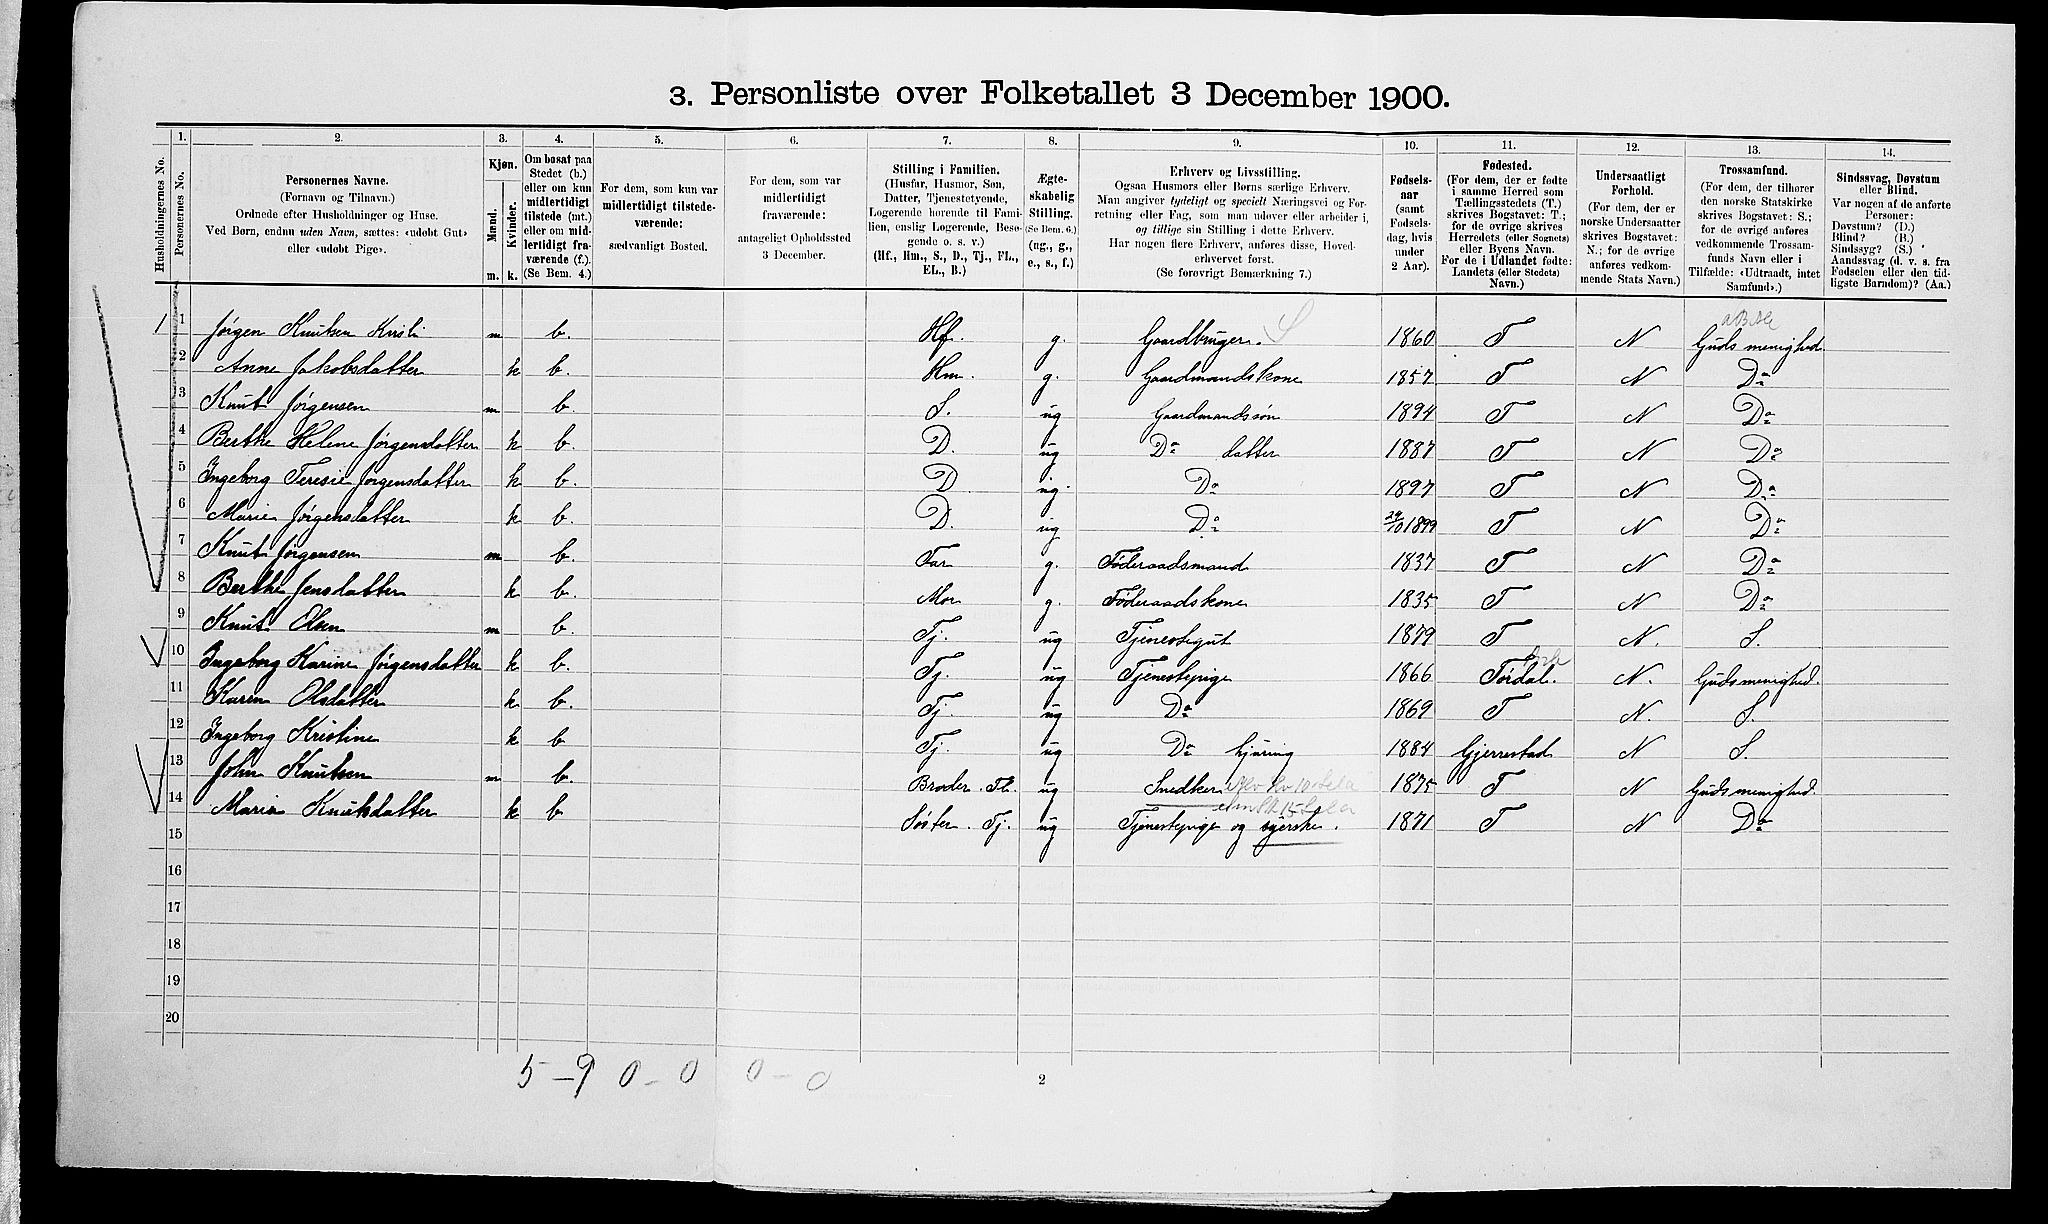 3. Personliste over Folketallet 3 December 1900.
1. 2. 3. 4. 5. 6. 7. 8. 9. 10. 11. 12. 13. 14.
Husholdningernes No.
Personernes No.
Personernes Navne.
(Fornavn og Tilnavn.)
Ordnede efter Husholdninger og Huse.
Ved Børn, endnu uden Navn, sættes: «udøbt Gut»
eller «udøbt Pige».
Kjøn.
Mænd.
Kvinder.
m. k.
Om bosat paa
Stedet (b.)
eller om kun
midlertidigt
tilstede (mt.)
eller om mid-
lertidigt fra-
værende (f.).
(Se Bem. 4.)
For dem, som kun var
midlertidigt tilstede-
værende:
sædvanligt Bosted.
For dem, som var
midlertidigt
fraværende:
antageligt Opholdssted
3 December.
Stilling i Familien.
(Husfar, Husmor, Søn,
Datter, Tjenestetyende,
Logerende hørende til Fami-
lien, enslig Logerende, Besø-
gende o. s. v.)
(Hf., Hm., S., D., Tj., FL.,
EL., B.)
Ægte-
skabelig
Stilling.
(Se Bem. 6.)
(ug., g.,
e., s., f.)
Erhverv og Livsstilling.
Ogsaa Husmors eller Børns særlige Erhverv.
Man angiver tydeligt og specielt Næringsvei og For-
retning eller Fag, som man udøver eller arbeider i,
og tillige sin Stilling i dette Erhverv.
Har nogen flere Erhverv, anføres disse, Hoved-
erhvervet først.
(Se forøvrigt Bemærkning 7.)
Fødsels-
aar
(samt
Fødsels-
dag, hvis
under
2 Aar).
Fødested.
(For dem, der er fødte
i samme Herred som
Tællingsstedets (T.)
skrives Bogstavet: T.;
for de øvrige skrives
Herredets (eller Sognets)
eller Byens Navn.
For de i Udlandet fødte:
Landets (eller Stedets)
Navn.)
Undersaatligt
Forhold.
(For dem, der er
norske Undersaatter
skrives Bogstavet:
N.; for de øvrige
anføres vedkom-
mende Stats Navn.)
Trossamfund.
(For dem, der tilhører
den norske Statskirke
skrives Bogstavet: S.;
for de øvrige anføres
vedkommende Trossam-
funds Navn eller i
Tilfælde: «Udtraadt, intet
Samfund».)
Sindssvag, Døvstum
eller Blind.
Var nogen af de anførte
Personer:
Døvstum? (D.)
Blind? (B.)
Sindssyg? (S.)
Aandssvag (d. v. s. fra
Fødselen eller den tid-
ligste Barndom)? (Aa.)
1 1 Jørgen Knutsen Kvisli m b. Hf. g. Gaardbruger. S 1860 T N Guds menighed
2 Anne Jakobsdatter k b. Hm. g. Gaardmandskone 1857 T N Do
3 Knut Jørgensen m b. S. ug Gaardmandssøn 1894 T N Do
4 Berthe Helene Jørgensdatter k b. D. ug Do datter 1887 T N Do
5 Ingeborg Teresie Jørgensdatter k b. D ug. Do 1897 T N Do
6 Marie Jørgensdatter k b. D. ug Do 29/10 1899 T N Do
7 Knut Jørgensen m b. Far g. Føderaadsmand 1837 T N Do
8 Berthe Jensdatter k b. Mor g. Føderaadskone 1835 T N Do
9 Knut Olsen m b. Tj. ug Tjenestegut 1879 T N. S.
10 Ingeborg Karine Jørgensdatter k b. Tj. ug Tjenestepige 1866 Tørdal. N. Gudsmenighed.
11 Karen Olsdatter k b. Tj. ug Do 1869 T N. S.
12 Ingeborg Kristine k b Tj. ug Do hjuring 1884 Gjerrestad N S.
13 John Knutsen m b. Broder. FL. ug Snedker 1875 T N Gudsmenighed.
14 Marie Knutsdatter k b Søster. Tj. ug Tjenestepige og syerske. 1871 T N Do
15
16
17
18
19
20
5 – 9 0 – 0 0 – 0
2